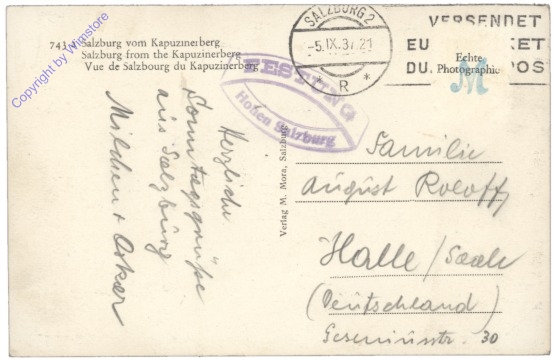 743 Salzburg vom Kapuzinerberg
Salzburg from the Kapuzinerberg
Vue de Salzbourg du Kapuzinerberg
Copyright by Wimstore
FESTUNG
Hohen Salzburg
SALZBURG 2
-5.IX.37.21
* R *
VERSENDET
EU KET
DU POS
Echte
Photographie
M
Herzliche
Sonntagsgrüße
aus Salzburg
Milchen + Oskar
Verlag M. Mora, Salzburg
Familie
August Roloff
Halle / Saale
(Deutschland)
30